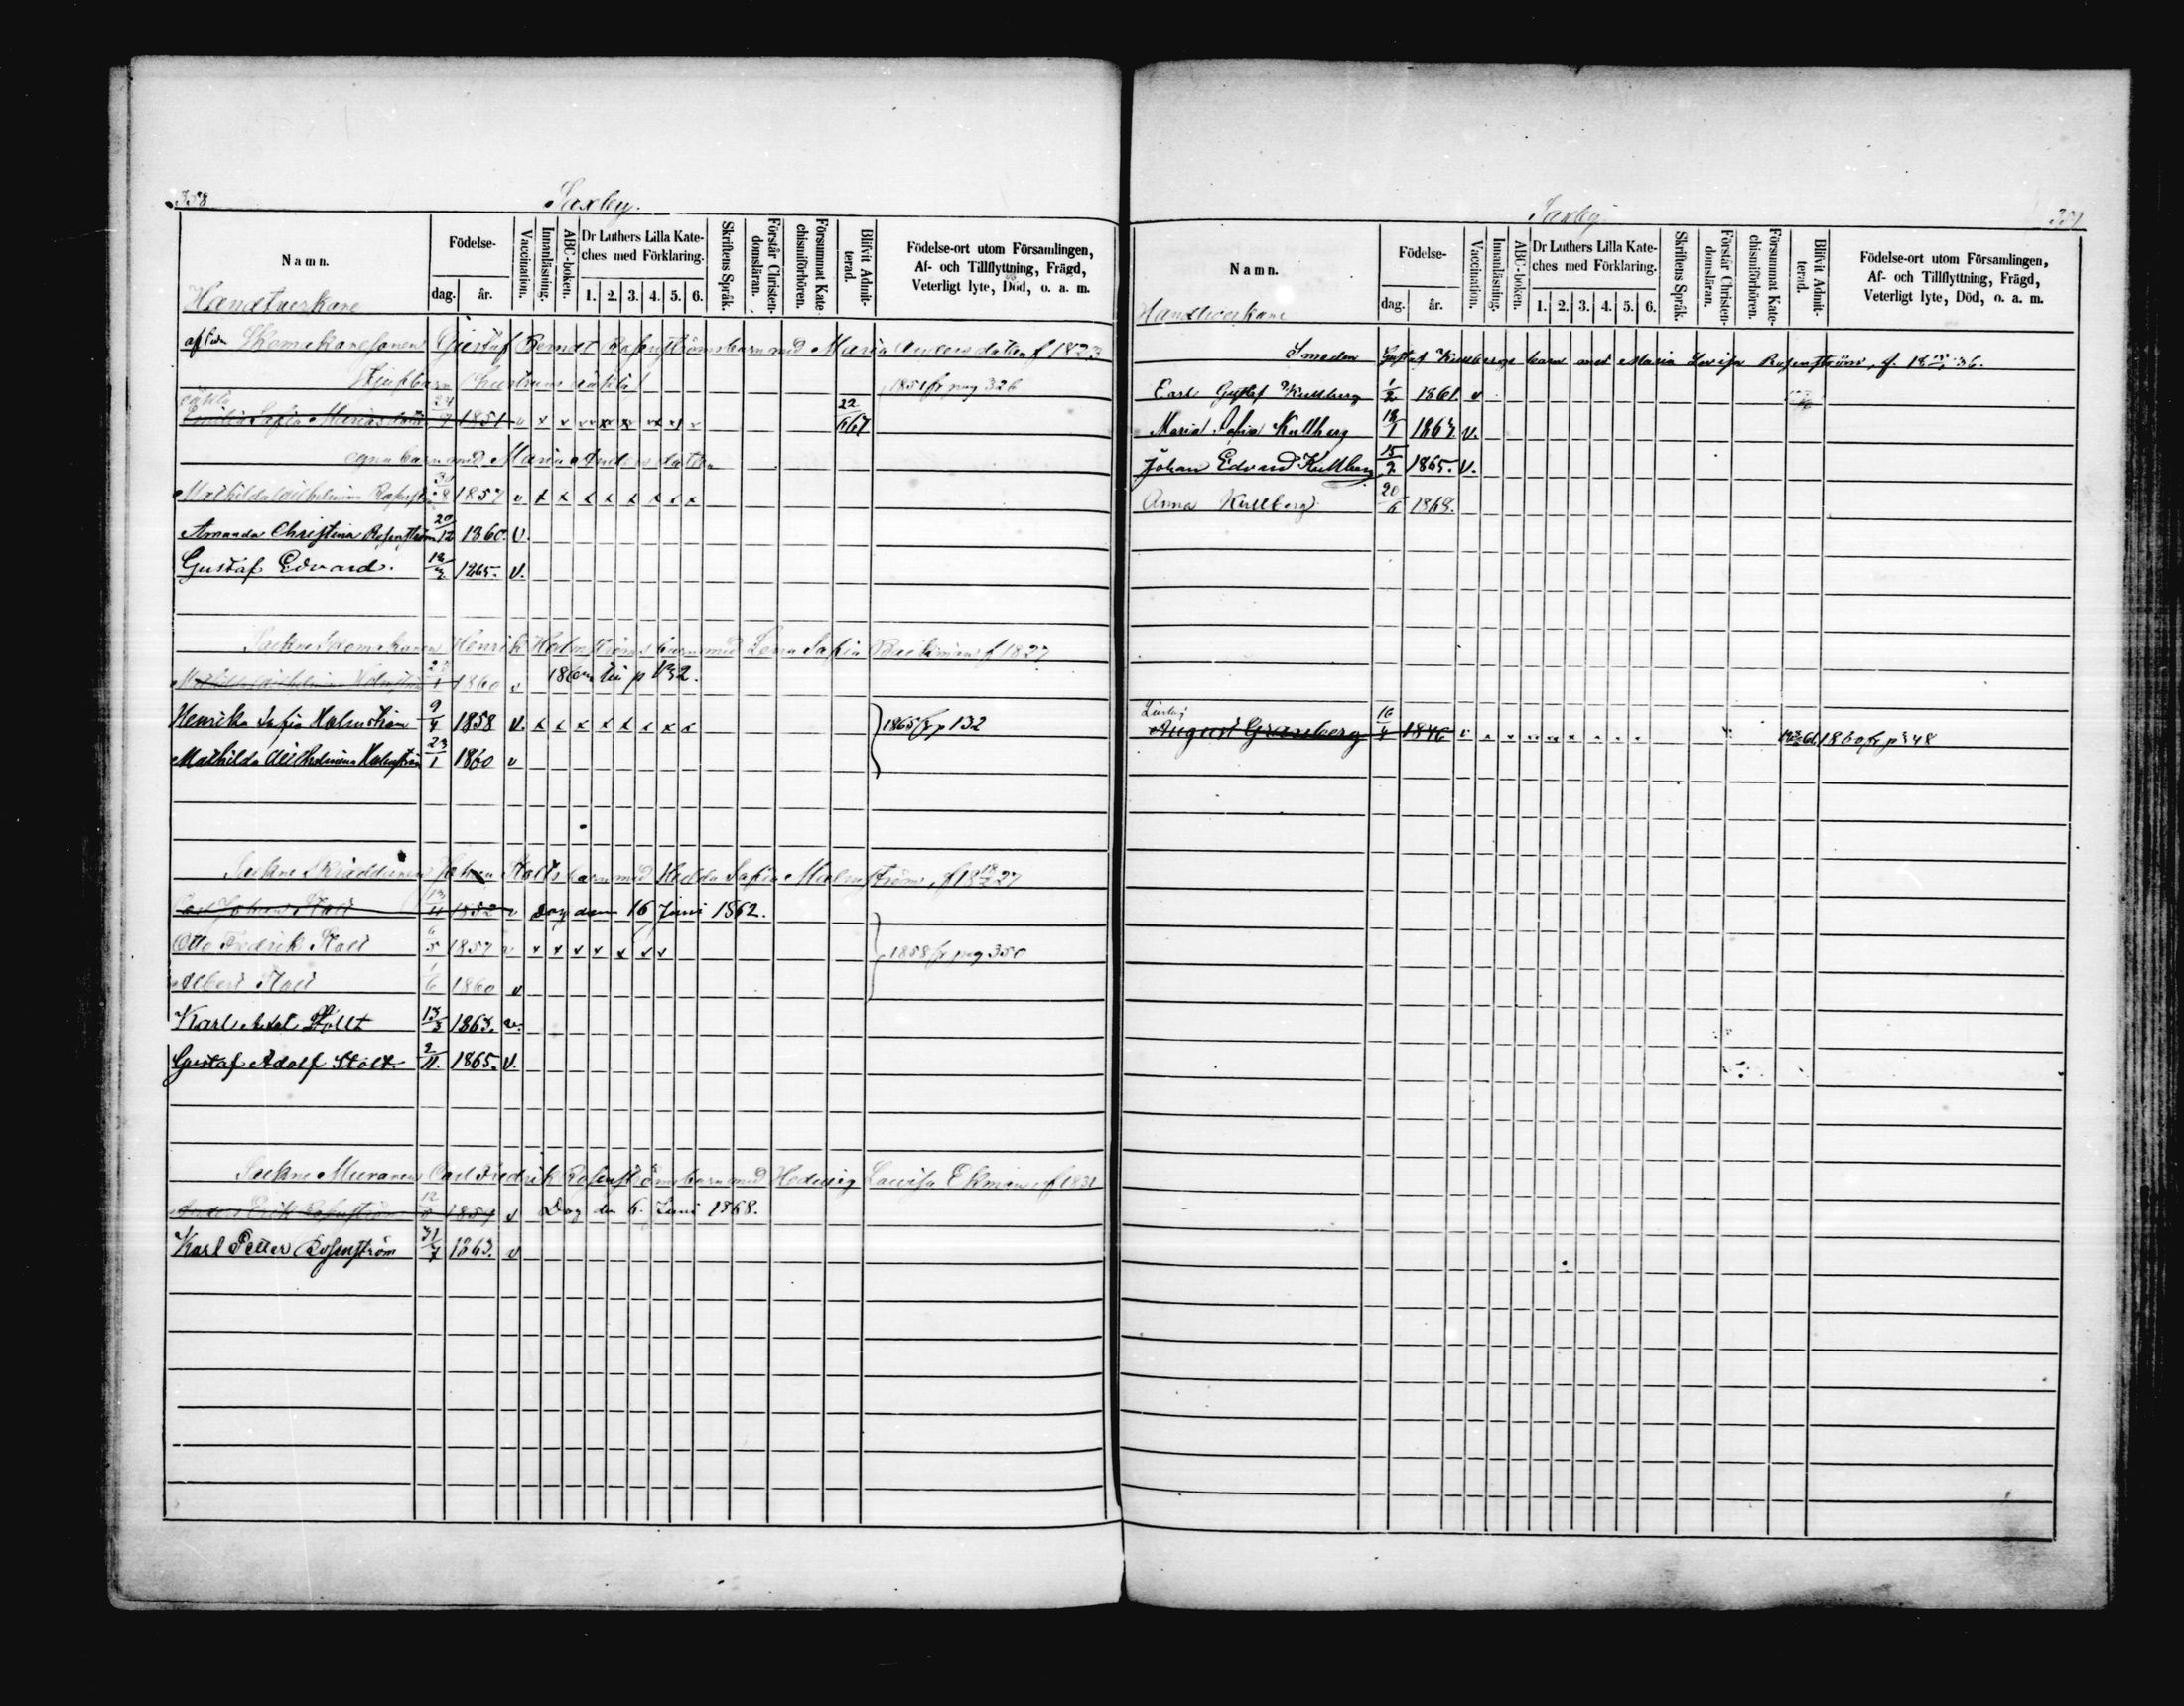 358
Saxby.
Namn. Födelse- dag. år. Vaccination. Innanläsning. ABC-boken. Dr Luthers Lilla Kateches med Förklaring. 1. 2. 3. 4. 5. 6. Skriftens Språk. Förstår Christendomsläran. Försummat Katechismiförhören. Blifvit Admitterad. Födelse-ort utom Församlingen, Af- och Tillflyttning, Frägd, Veterligt lyte, Död, o. a. m.
Handtverkare
Skomakaresonen Gustaf Berndt Rosenströms barn med Maria Andersdotter f 1823
1851 fr pag 326
oäkta
Emilia Sofia Mariasdotter 24/9 1851 v x x x x x x x x 22/6 67
egna barn med Maria Andersdotter
Mathilda Wilhelmina Rosenström 30/8 1857 v x x x x x x x x
Amanda Christina Rosenström 20/12 1860. V.
Gustaf Edvard. 1865. V.
Sockne Skomakaren Henrik Holmströms barn med Lena Sofia f 1827
Mathilda Wilhelmina Holmström 1 1860 v 1860 till p 132.
Henrika Sofia Holmström 1858 V. x x x x x x x x 1865 fr p 132
Mathilda Wilhelmina Holmström 23/1 1860 v
Sockne Skräddaren Johan Stolts barn med Hedda Sofia Malmström, f 18 27
Carl Johan Stolt 13/11 1852 v Dog den 16 Juni 1862.
Otto Fredrik Stolt 6/5 1857 v x x x x x x x 1858 fr pag 350
Albert Stolt 1/6 1860 v
Karl Axel Stollt 13/3 1863. v.
Gustaf Adolf Stolt. 2/11. 1865. V.
Sockne Muraren Carl Fredrik Rosenströms barn med Hedvig Lovisa Ekman f 1831
Anders Erik Rosenström 12 1859 v Dog den 6. Juni 1868.
Karl Petter Rosenström 31/7 1863. v
Saxby
Namn. Födelse- dag. år. Vaccination. Innanläsning. ABC-boken. Dr Luthers Lilla Kateches med Förklaring. 1. 2. 3. 4. 5. 6. Skriftens Språk. Förstår Christendomsläran. Försummat Katechismiförhören. Blifvit Admitterad. Födelse-ort utom Församlingen, Af- och Tillflyttning, Frägd, Veterligt lyte, Död, o. a. m.
Handtverkare
Smeden Gustaf Kullbergs barn med Maria Lovisa Rosenström, f. 18 36.
Carl Gustaf Kullberg 1/2 1861. v
Maria Sofia Kullberg 18/1 1863. V.
Johan Edvard Kullberg 15/2 1865. V.
Anna Kullberg 20/6 1868.
August Granberg 16/4 1846 v 1860 fr p 348